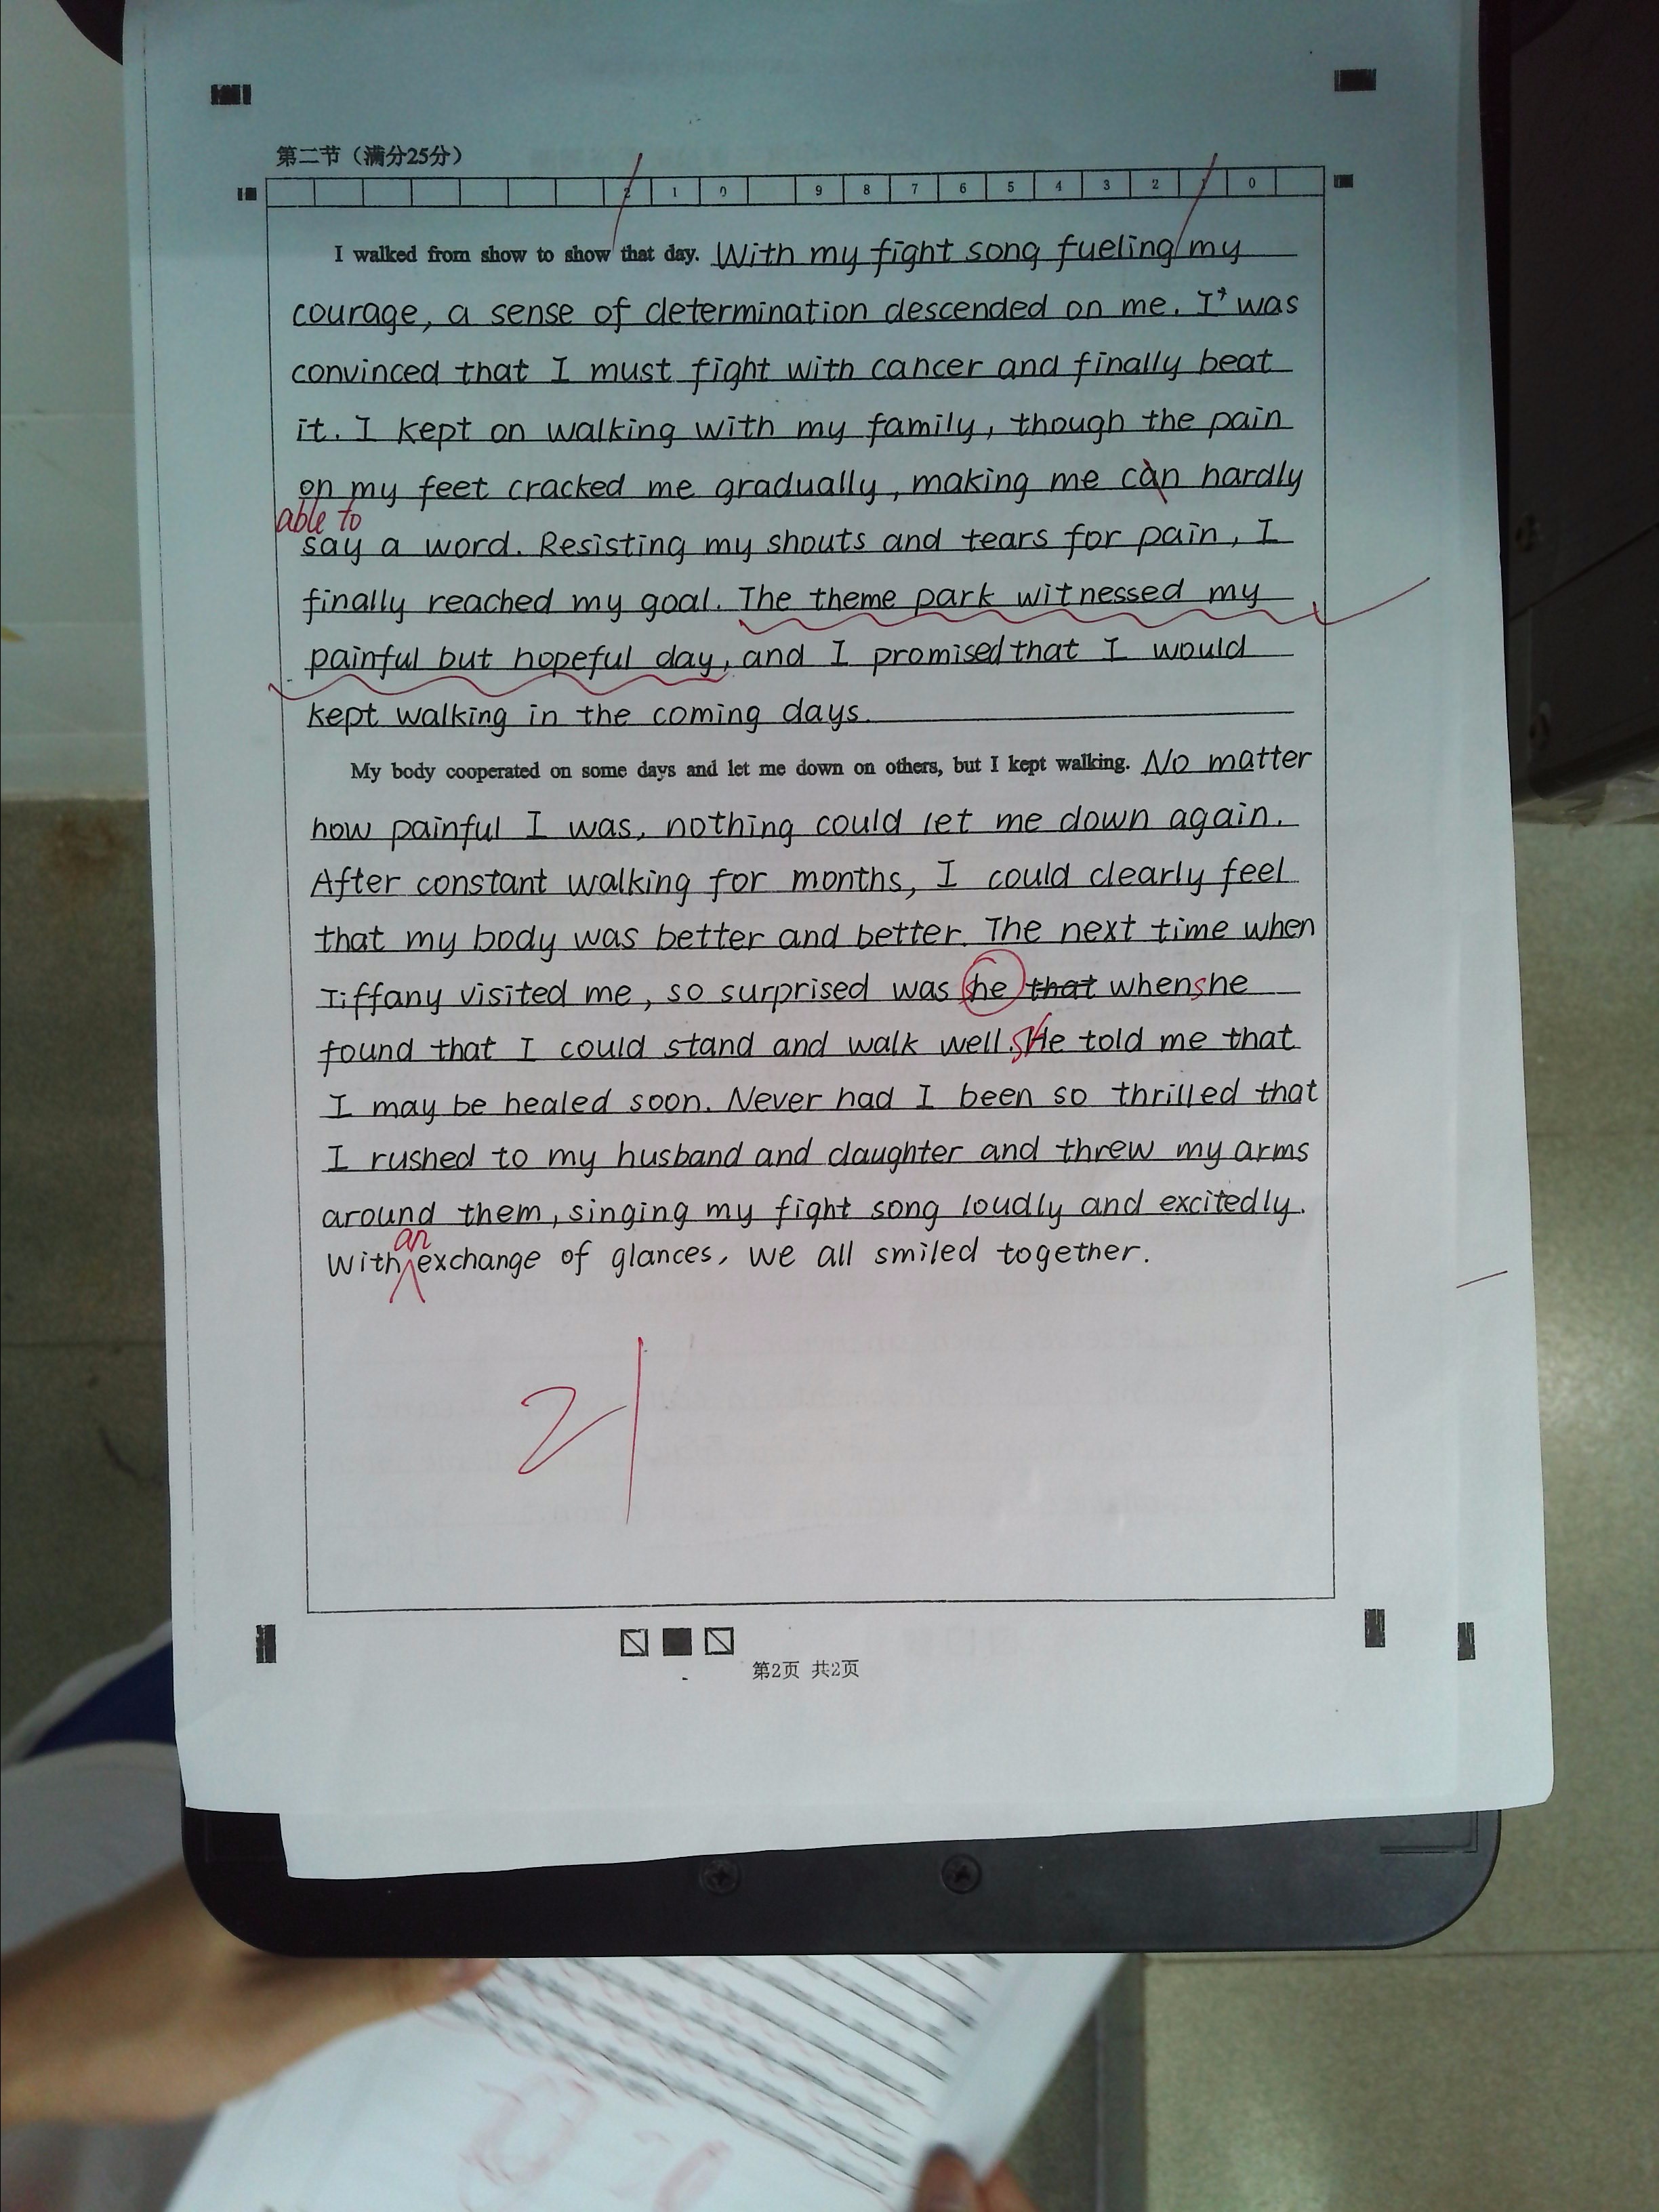 第二节（满分25分）
2 1 0 9 8 7 6 5 4 3 2 1 0
I walked from show to show that day. With my fight song fueling my
courage, a sense of determination descended on me. I was
convinced that I must fight with cancer and finally beat
it. I kept on walking with my family, though the pain
on my feet cracked me gradually, making me can hardly
able to
say a word. Resisting my shouts and tears for pain, I
finally reached my goal. The theme park witnessed my
painful but hopeful day, and I promised that I would
kept walking in the coming days.
My body cooperated on some days and let me down on others, but I kept walking. No matter
how painful I was, nothing could let me down again.
After constant walking for months, I could clearly feel
that my body was better and better. The next time when
Tiffany visited me, so surprised was she that when she
found that I could stand and walk well. She told me that
I may be healed soon. Never had I been so thrilled that
I rushed to my husband and daughter and threw my arms
around them, singing my fight song loudly and excitedly.
an
With exchange of glances, we all smiled together.
21
第2页 共2页